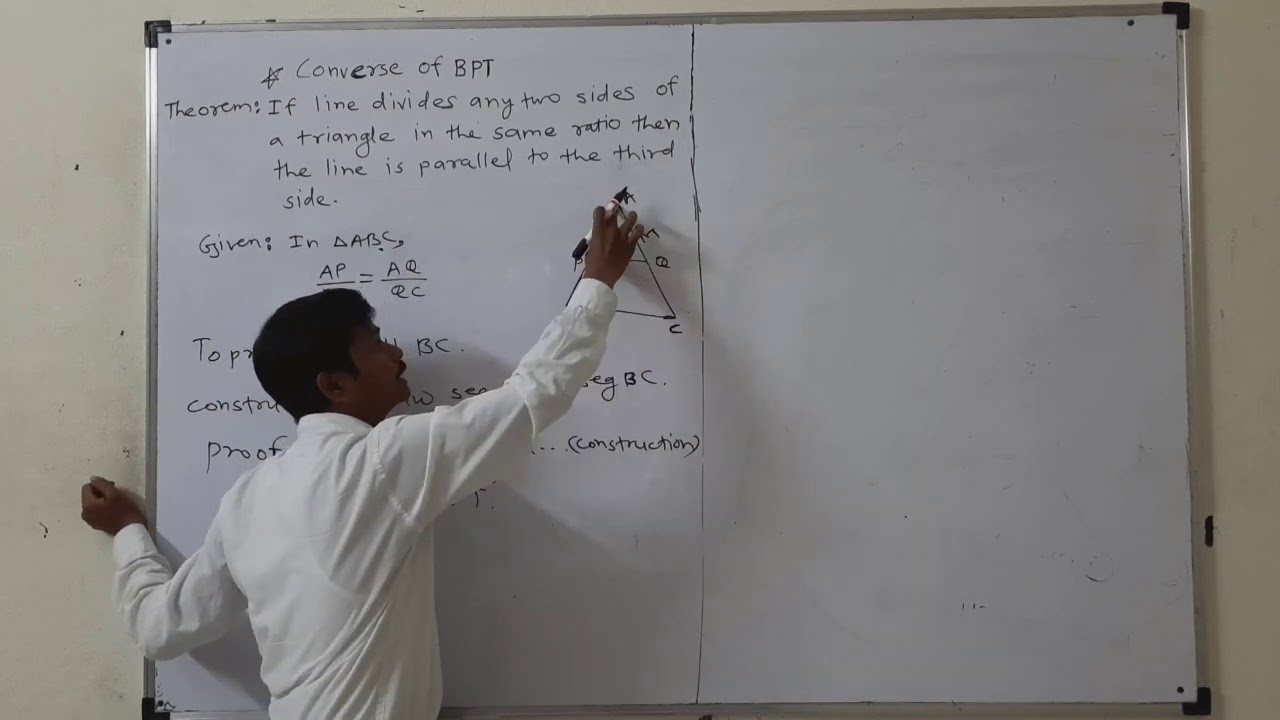 * Converse of BPT
Theorem: If line divides any two sides of
a triangle in the same ratio then
the line is parallel to the third
side.
Given: In △ABC,
AP = AQ
QC
To BC.
seg BC.
proof ...(construction)
A
M
P Q
C